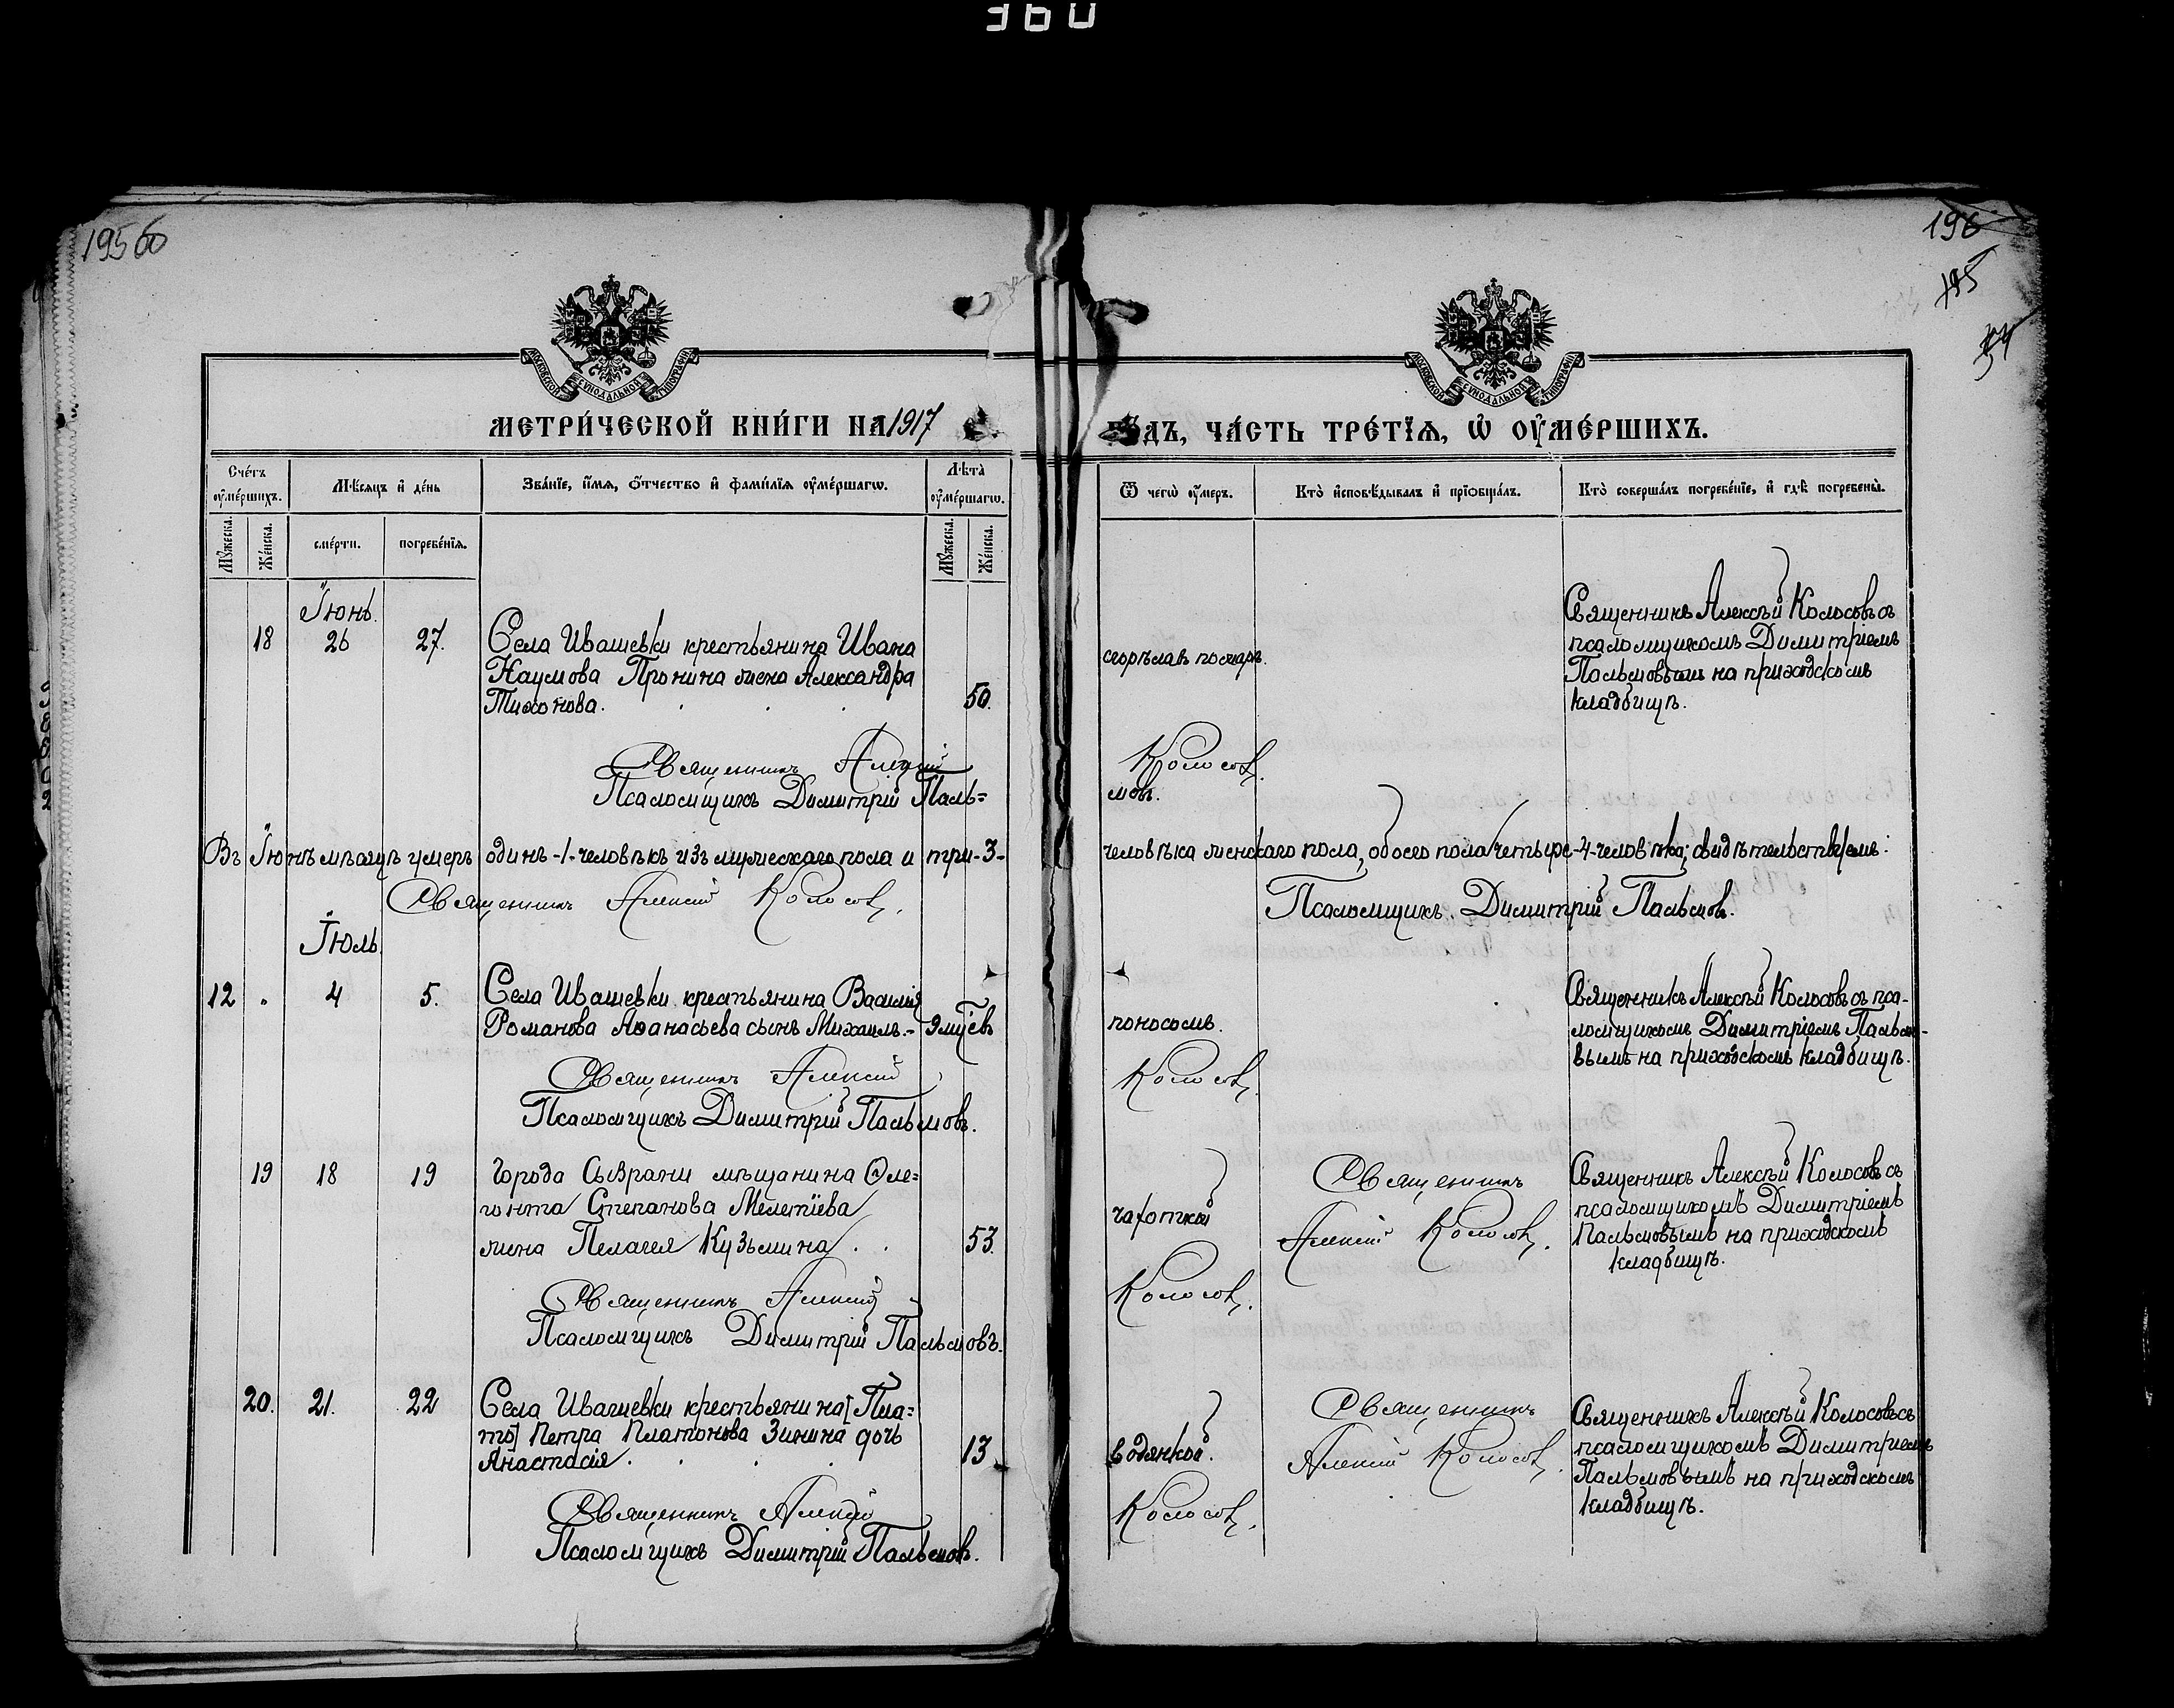 360
195 60
196
195
МОСКОВСКОЙ СѴНОДАЛЬНОЙ ТИПОГРАФІИ
МОСКОВСКОЙ СѴНОДАЛЬНОЙ ТИПОГРАФІИ
МЕТРИ́ЧЕСКОЙ КНИ́ГИ НА 1917
ГО́ДЪ, ЧА́СТЬ ТРЕ́ТЇѦ, Ѡ҆ ОУ҆МЕ́РШИХЪ.
Сче́тъ оу҆ме́ршихъ.
Мѣ́сяцъ и҆ де́нь
Зва́нїе, и҆́мѧ, ѻ҆́тчество и҆ фами́лїѧ оу҆ме́ршагѡ.
Лѣ́та оу҆ме́ршагѡ.
Ѿ чегѡ̀ оу҆́меръ.
Кто̀ и҆сповѣ́дывалъ и҆ прїѡбща́лъ.
Кто̀ соверша́лъ погребе́нїе, и҆ гдѣ̀ погребены̀.
Мꙋ́жеска.
Же́нска.
сме́рти.
погребе́нїѧ.
Мꙋ́жеска.
Же́нска.
Іюнь.
18 26 27. Села Ивашевки крестьянина Ивана
Наумова Пронина жена Александра
Тихонова. 50.
сгорѣла въ пожарѣ.
Священникъ Алексѣй Колосовъ съ
псаломщикомъ Димитріемъ
Пальмовымъ на приходскомъ
кладбищѣ.
Священникъ Алексій Колосовъ.
Псаломщикъ Димитрій Паль=мовъ.
Въ Іюнѣ мѣсяцѣ умеръ одинъ -1- человѣкъ изъ мужескаго пола и три -3- человѣка женскаго пола, обоего пола четыре -4- человѣка; свидѣтельствуемъ:
Священникъ Алексій Колосовъ. Псаломщикъ Димитрій Пальмовъ.
Іюль
12 " 4 5. Села Ивашевки крестьянина Василія
Романова Аѳанасьева сынъ Михаилъ.- 9 мцевъ
поносомъ.
Священникъ Алексѣй Колосовъ съ пса-
ломщикомъ Димитріемъ Пальмо-
вымъ на приходскомъ кладбищѣ.
Священникъ Алексій Колосовъ.
Псаломщикъ Димитрій Пальмовъ.
19 18 19 Города Сызрани мѣщанина Фле=
гонта Степанова Мелетіева
жена Пелагея Кузьмина . . 53.
чахоткой
Священникъ
Алексій Колосовъ.
Священникъ Алексѣй Колосовъ съ
псаломщикомъ Димитріемъ
Пальмовымъ на приходскомъ
кладбищѣ.
Священникъ Алексій Колосовъ.
Псаломщикъ Димитрій Пальмовъ.
20. 21. 22 Села Ивашевки крестьянина [Пла=
то] Петра Платонова Зинина дочь
Анастасія. 13
водянкой.
Священникъ
Алексій Колосовъ.
Священникъ Алексѣй Колосовъ съ
псаломщикомъ Димитріемъ
Пальмовымъ на приходскомъ
кладбищѣ.
Священникъ Алексій Колосовъ.
Псаломщикъ Димитрій Пальмовъ.